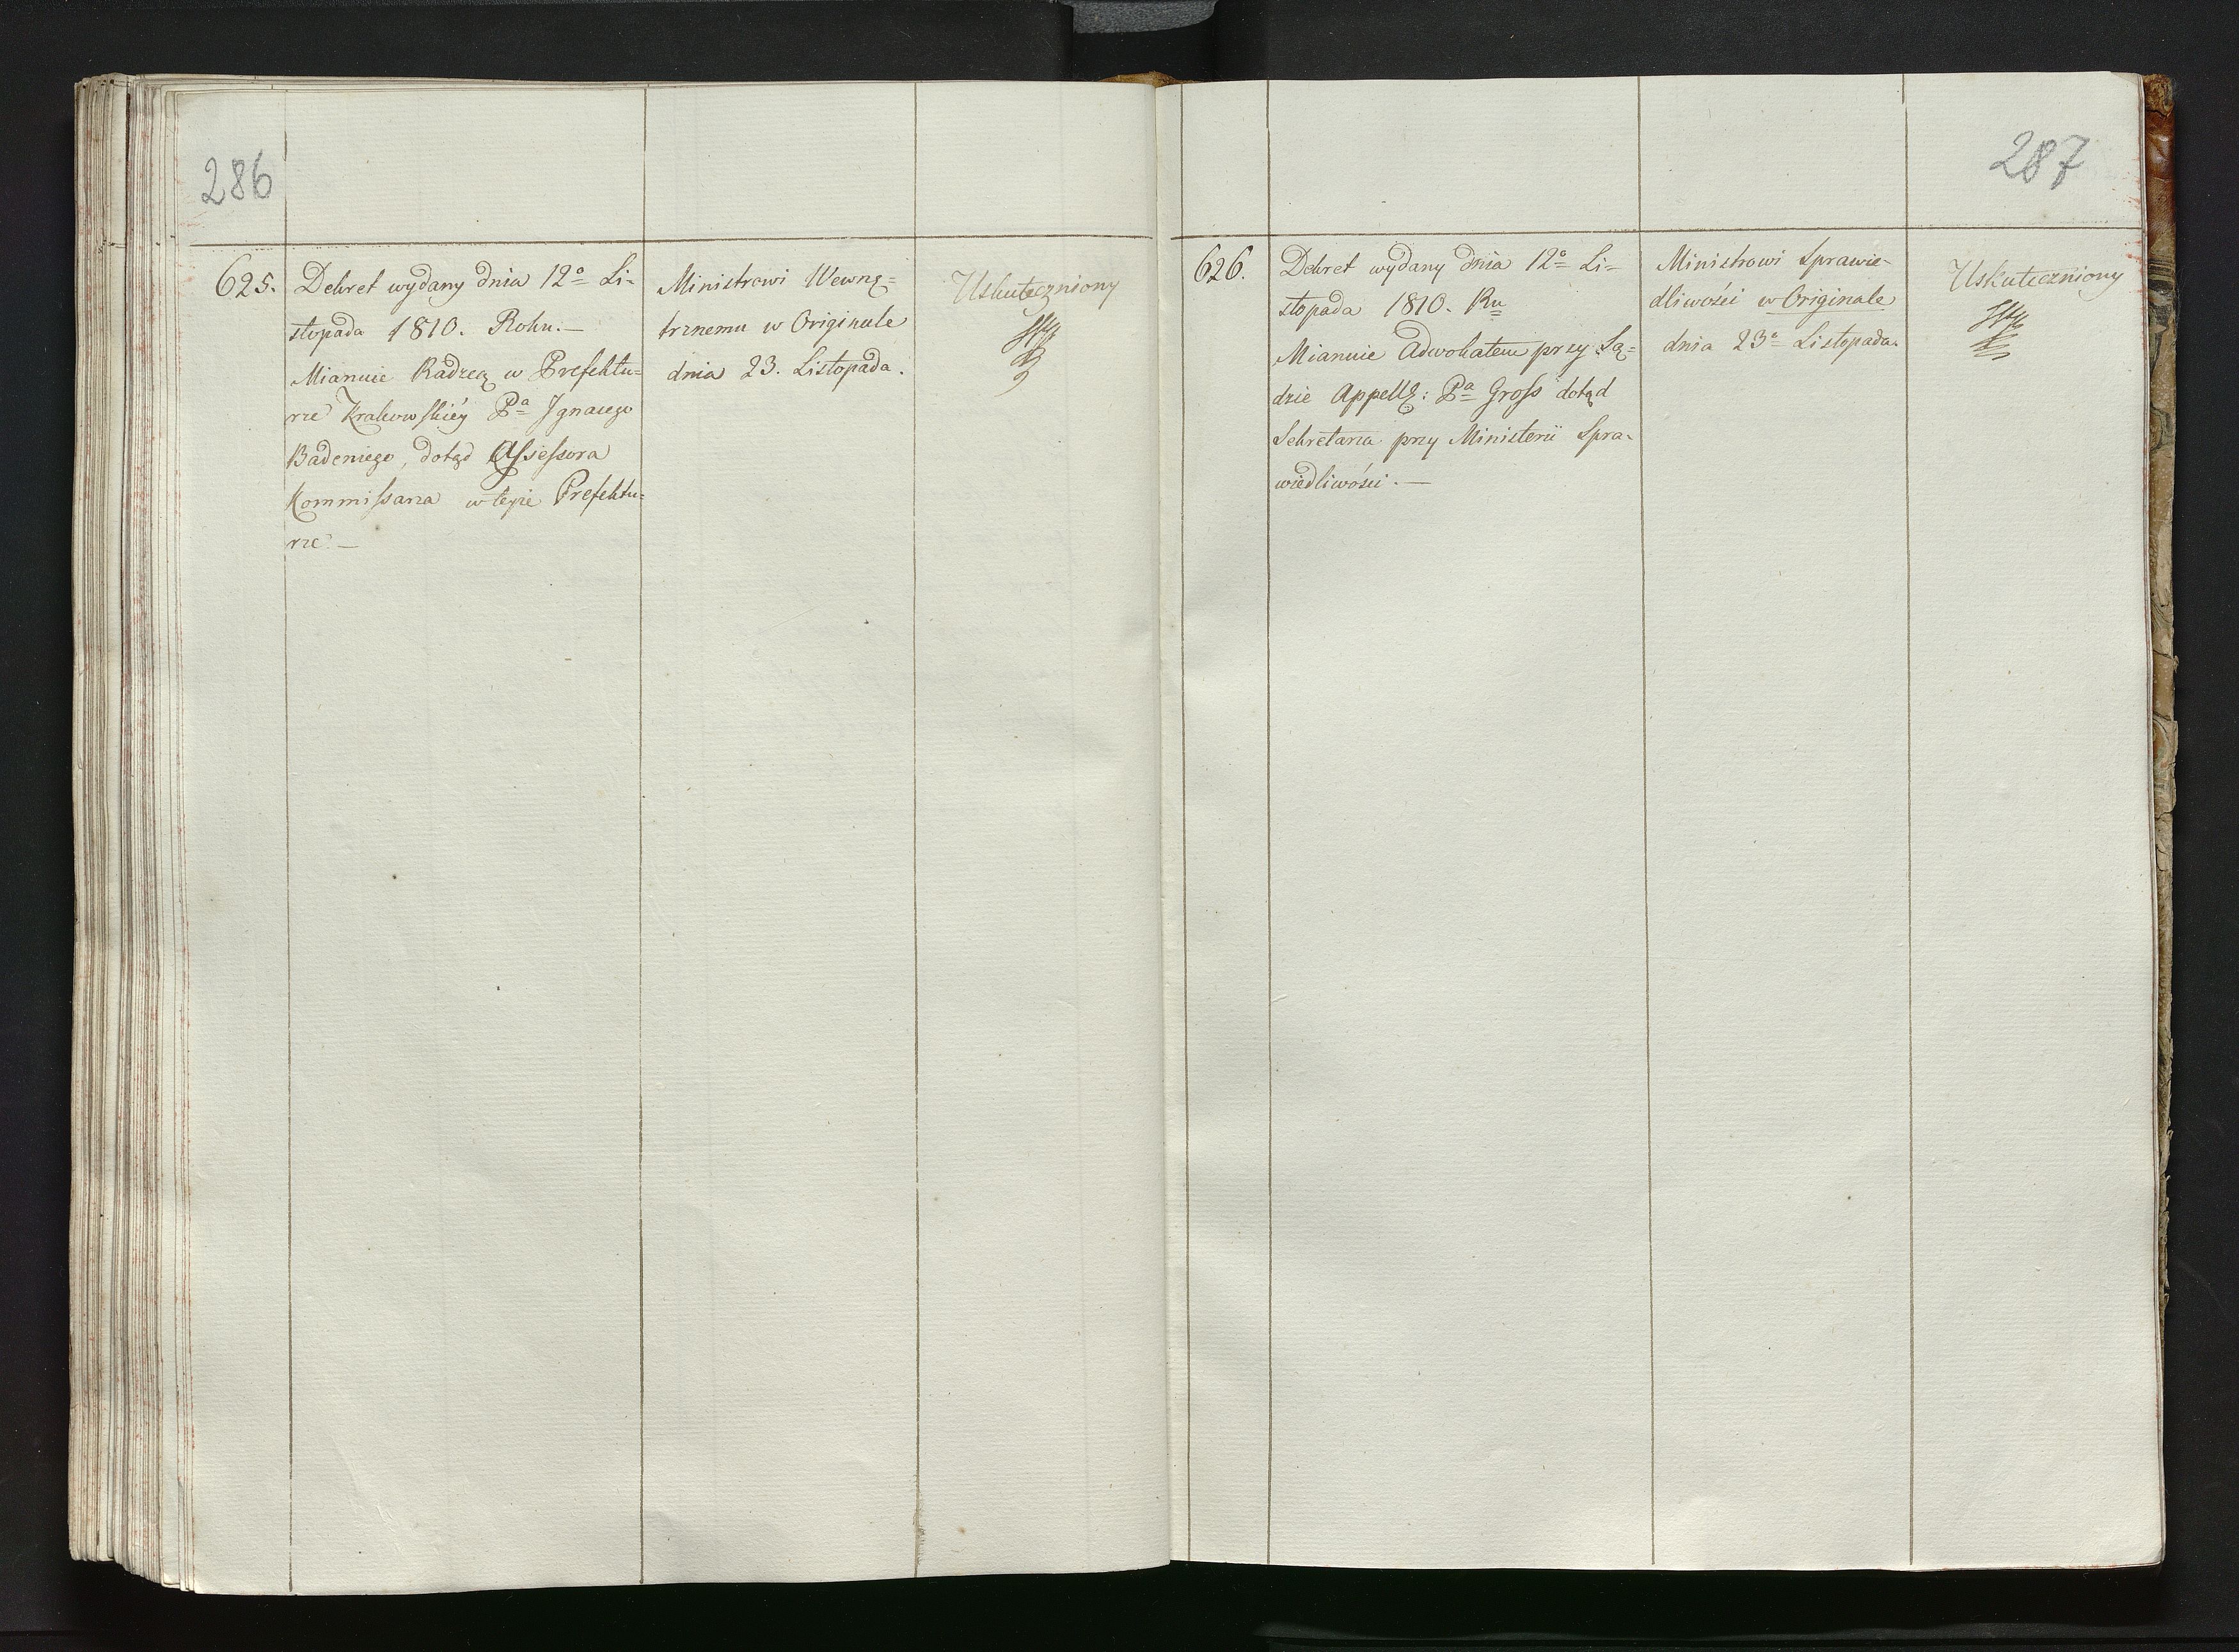 286
625.
Dekret wydany dnia 12º Li-
stopada 1810. Roku.—
Mianuie Radzcą w Prefektu=
rze Krakowskiéy Pª Jgnacego
Badeniego, dotąd Assessora
Kommissarza w teyże Prefektu=
rze.—
Ministrowi Wewnę=
trznemu w Originale
dnia 23. Listopada.
Uskuteczniony
287
626.
Dekret wydany dnia 12º Li=
stopada 1810. Ru
Mianuie Adwokatem przy Są=
dzie Appell: Pª Gross dotąd
Sekretarza przy Ministerii Spra-
wiedliwości.—
Ministrowi Sprawie-
dliwości w Originale
dnia 23º Listopada.
Uskuteczniony